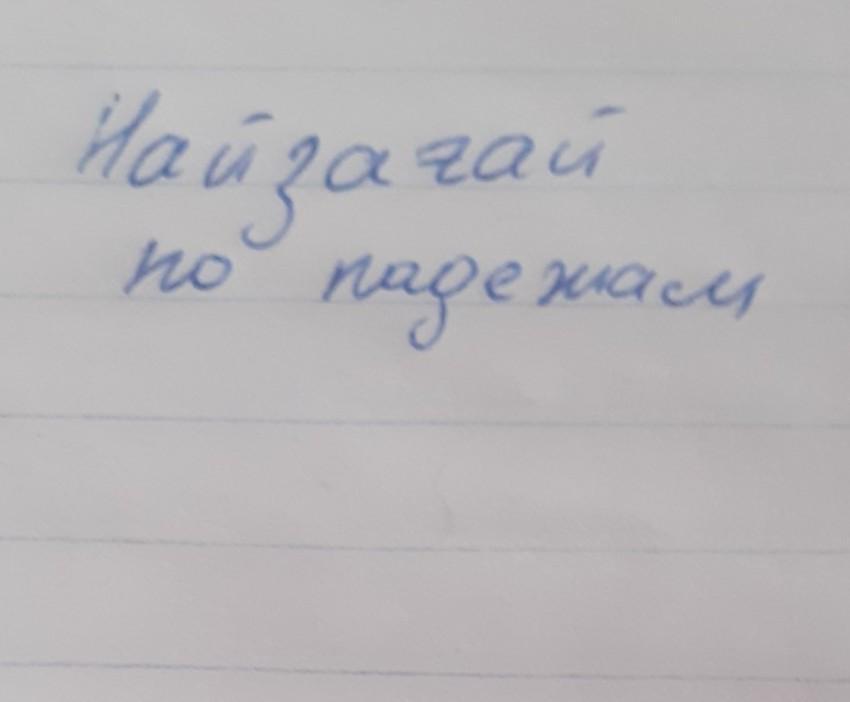 Найзагай
по падежам